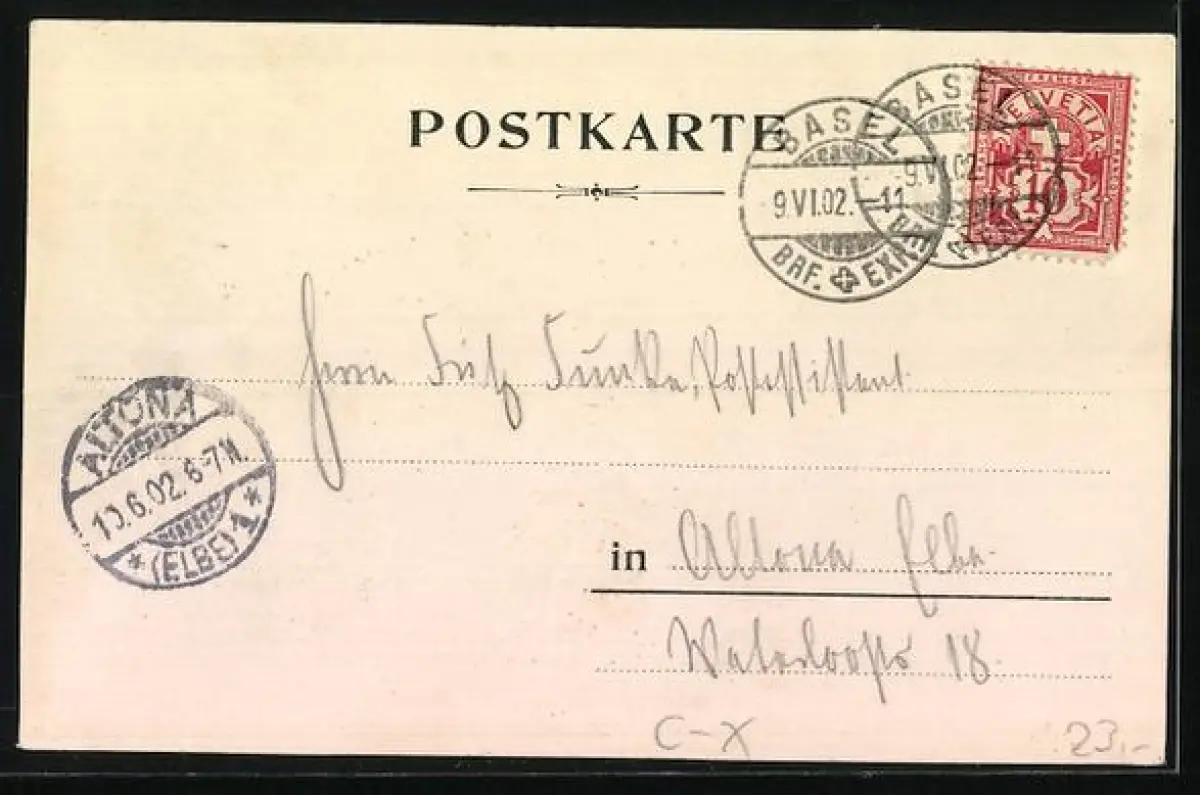 POSTKARTE
BASEL
9.VI.02.–11
BRF. EXP.
BASEL
9.VI.02.–11
FRANCO
HELVETIA
10
Herrn Fritz Funke, Postassistent
ALTONA
10.6.02. 6-7N.
* (ELBE) 1 *
in Altona Elbe
Waterloostr 18.
C-X
23.-